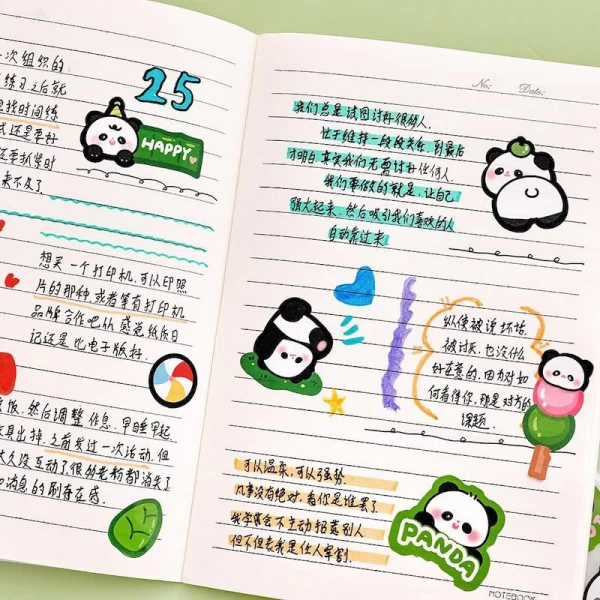 次组织的
25
练习之后就
找时间练
HAPPY
还是要好
还要抓紧时
来不及了
想买一个打印机,可以印照
片的那种,或者等有打印机
品牌合作吧从感觉纸质日
记还是比电子版好.
饭,然后调整作息,早睡早起
出掉,之前发过一次活动,但
久没互动了很多老粉都消失了
消息的刷存在感.
No:
Date:
我们总是试图讨好很多人,
忙于维持一段段关系,到最后
才明白其实我们无需讨好任何人.
我们要做的就是,让自己
强大起来,然后吸引我们喜欢的人
自动靠过来
纵使被说坏话,
被讨厌,也没什么
好在意的,因为对如
何看待你,那是对方的
课题.
可以温柔,可以强势.
凡事没有绝对,看你是谁罢了.
我平常会不主动招惹别人
但不代表我是任人宰割.
PANDA
NOTEBOOK